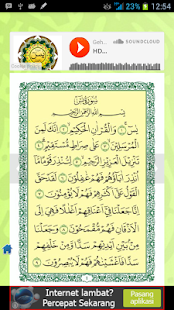 12:54
Geh...
SOUNDCLOUD
HD...
سُورَةُ يٰسٓ
بِسْمِ اللَّهِ الرَّحْمٰنِ الرَّحِيمِ
يٰسٓ ۝ وَالْقُرْاٰنِ الْحَكِيْمِ ۝ اِنَّكَ لَمِنَ
الْمُرْسَلِيْنَ ۝ عَلٰى صِرَاطٍ مُّسْتَقِيْمٍ ۝
تَنْزِيْلَ الْعَزِيْزِ الرَّحِيْمِ ۝ لِتُنْذِرَ قَوْمًا مَّآ
اُنْذِرَ اٰبَآؤُهُمْ فَهُمْ غٰفِلُوْنَ ۝ لَقَدْ حَقَّ
الْقَوْلُ عَلٰٓى اَكْثَرِهِمْ فَهُمْ لَا يُؤْمِنُوْنَ ۝
اِنَّا جَعَلْنَا فِيْٓ اَعْنَاقِهِمْ اَغْلٰلًا فَهِيَ اِلَى
الْاَذْقَانِ فَهُمْ مُّقْمَحُوْنَ ۝ وَجَعَلْنَا
مِنْۢ بَيْنِ اَيْدِيْهِمْ سَدًّا وَّمِنْ خَلْفِهِمْ
سَدًّا فَاَغْشَيْنٰهُمْ فَهُمْ لَا يُبْصِرُوْنَ ۝
Internet lambat?
Percepat Sekarang
Pasang
aplikasi